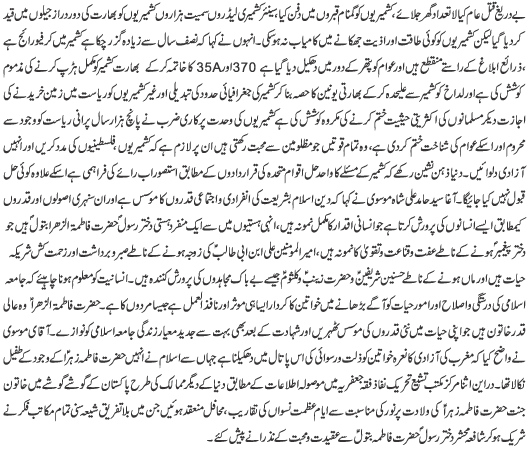 بے دریغ قتل عام کیا لاتعداد گھر جلائے، کشمیریوں کو گمنام قبروں میں دفن کیا، سینئر کشمیری لیڈروں سمیت ہزاروں کشمیریوں کو بھارت کی دور دراز جیلوں میں قید
کردیا گیا لیکن کشمیریوں کو کوئی طاقت اور اذیت جھکانے میں کامیاب نہ ہوسکی۔ انہوں نے کہا کہ نصف سال سے زیادہ گزر چکا ہے کشمیر میں کرفیو رائج ہے
، ذرائع ابلاغ کے راستے منقطع ہیں اور عوام کو پتھر کے دور میں دھکیل دیا گیا ہے 370 اور 35A کا خاتمہ کر کے بھارت کشمیر کو مکمل ہڑپ کرنے کی مذموم
کوشش کی ہے اور لداخ کو کشمیر سے علیحدہ کر کے بھارتی یونین کا حصہ بنا کر کشمیر کی جغرافیائی حدود کی تبدیلی اور غیر کشمیریوں کو ریاست میں زمین خریدنے کی
اجازت دیکر مسلمانوں کی اکثریتی حیثیت ختم کرنے کی مکروہ کوشش کی ہے کشمیریوں کی وحدت پر کاری ضرب نے پانچ ہزار سال پرانی ریاست کو وجود سے
محروم اور اسکے عوام کی شناخت ختم کر دی ہے، وہ تمام قوتیں جو مظلومین سے محبت رکھتی ہیں ان پر لازم ہے کہ کشمیریوں، فلسطینیوں کی مدد کریں اور انہیں
آزادی دلوائیں۔ دنیا ذہن نشین رکھے کہ کشمیر کے مسئلے کا واحد حل اقوام متحدہ کی قراردادوں کے مطابق استصواب رائے کی فراہمی ہے اسکے علاوہ کوئی حل
قبول نہیں کیا جائیگا۔ آغا سید حامد علی شاہ موسوی نے کہا کہ دین اسلام بشریت کی انفرادی و اجتماعی قدروں کا موسس ہے اور ان سنہری اصولوں اور قدروں
کیمطابق ایسے انسانوں کی پرورش کرتا ہے جو انسانی اقدار کا مکمل نمونہ ہیں، انہی ہستیوں میں سے ایک منفرد ہستی دختر رسولؐ حضرت فاطمۃ الزہرا بتولؑ ہیں جو
دختر پیغمبرؐ ہونے کے ناطے عفت و قناعت و تقویٰ کا نمونہ ہیں، امیر المومنین علی ابن ابی طالبؑ کی زوجہ ہونے کے ناطے صبر و برداشت اور زحمت کش شریکہ
حیات ہیں اور ماں ہونے کے ناطے حسنین شریفینؑ و حضرت زینبؑ و کلثومؑ جیسے بے باک مجاہدوں کی پرورش کنندہ ہیں۔ انسانیت کو معلوم ہونا چاہیئے کہ جامعہ
اسلامی کی درستگی و اصلاح اور امور حیات کو آگے بڑھانے میں خواتین کا کردار ایسا ہی موثر اور نافذ العمل ہے جیسا مردوں کا ہے۔ حضرت فاطمۃ الزہراؑ وہ عالی
قدر خاتون ہیں جو اپنی حیات میں نئی قدروں کی موسس ٹھہریں اور شہادت کے بعد بھی بہت سے جدید معیار زندگی جامعہ اسلامی کو نوازے۔ آقای موسوی
نے واضح کیا کہ مغرب کی آزادی کا نعرہ خواتین کو ذلت و رسوائی کی اس پاتال میں دھکیلنا ہے جہاں سے اسلام نے انہیں حضرت فاطمہ زہراؑ کے وجود کے طفیل
نکالا تھا۔ دریں اثنا مرکز مکتب تشیع تحریک نفاذ فقہ جعفریہ میں موصولہ اطلاعات کے مطابق دنیا کے دیگر ممالک کی طرح پاکستان کے گوشے گوشے میں خاتون
جنت حضرت فاطمہ زہراؑ کی ولادت پر نور کی مناسبت سے ایام عظمت نسواں کی تقاریب، محافل منعقد ہوئیں جن میں بلا تفریق شیعہ سنی تمام مکاتب فکر نے
شریک ہو کر شافعہ محشر دختر رسولؐ حضرت فاطمہ بتولؑ سے عقیدت و محبت کے نذرانے پیش کئے۔